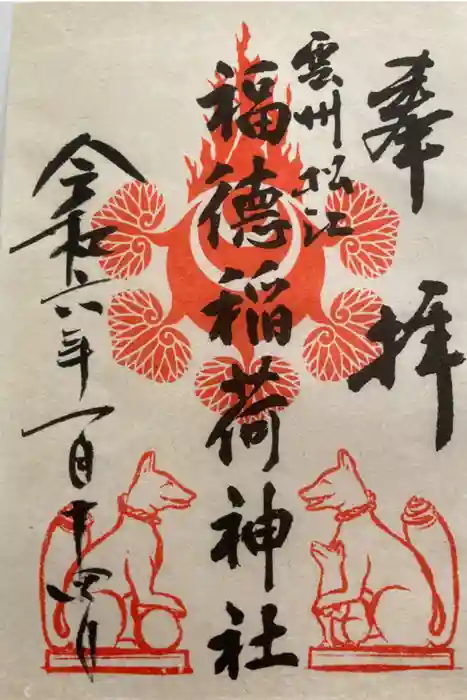 奉拝
雲州松江
福徳稲荷神社
令和六年一月十四日